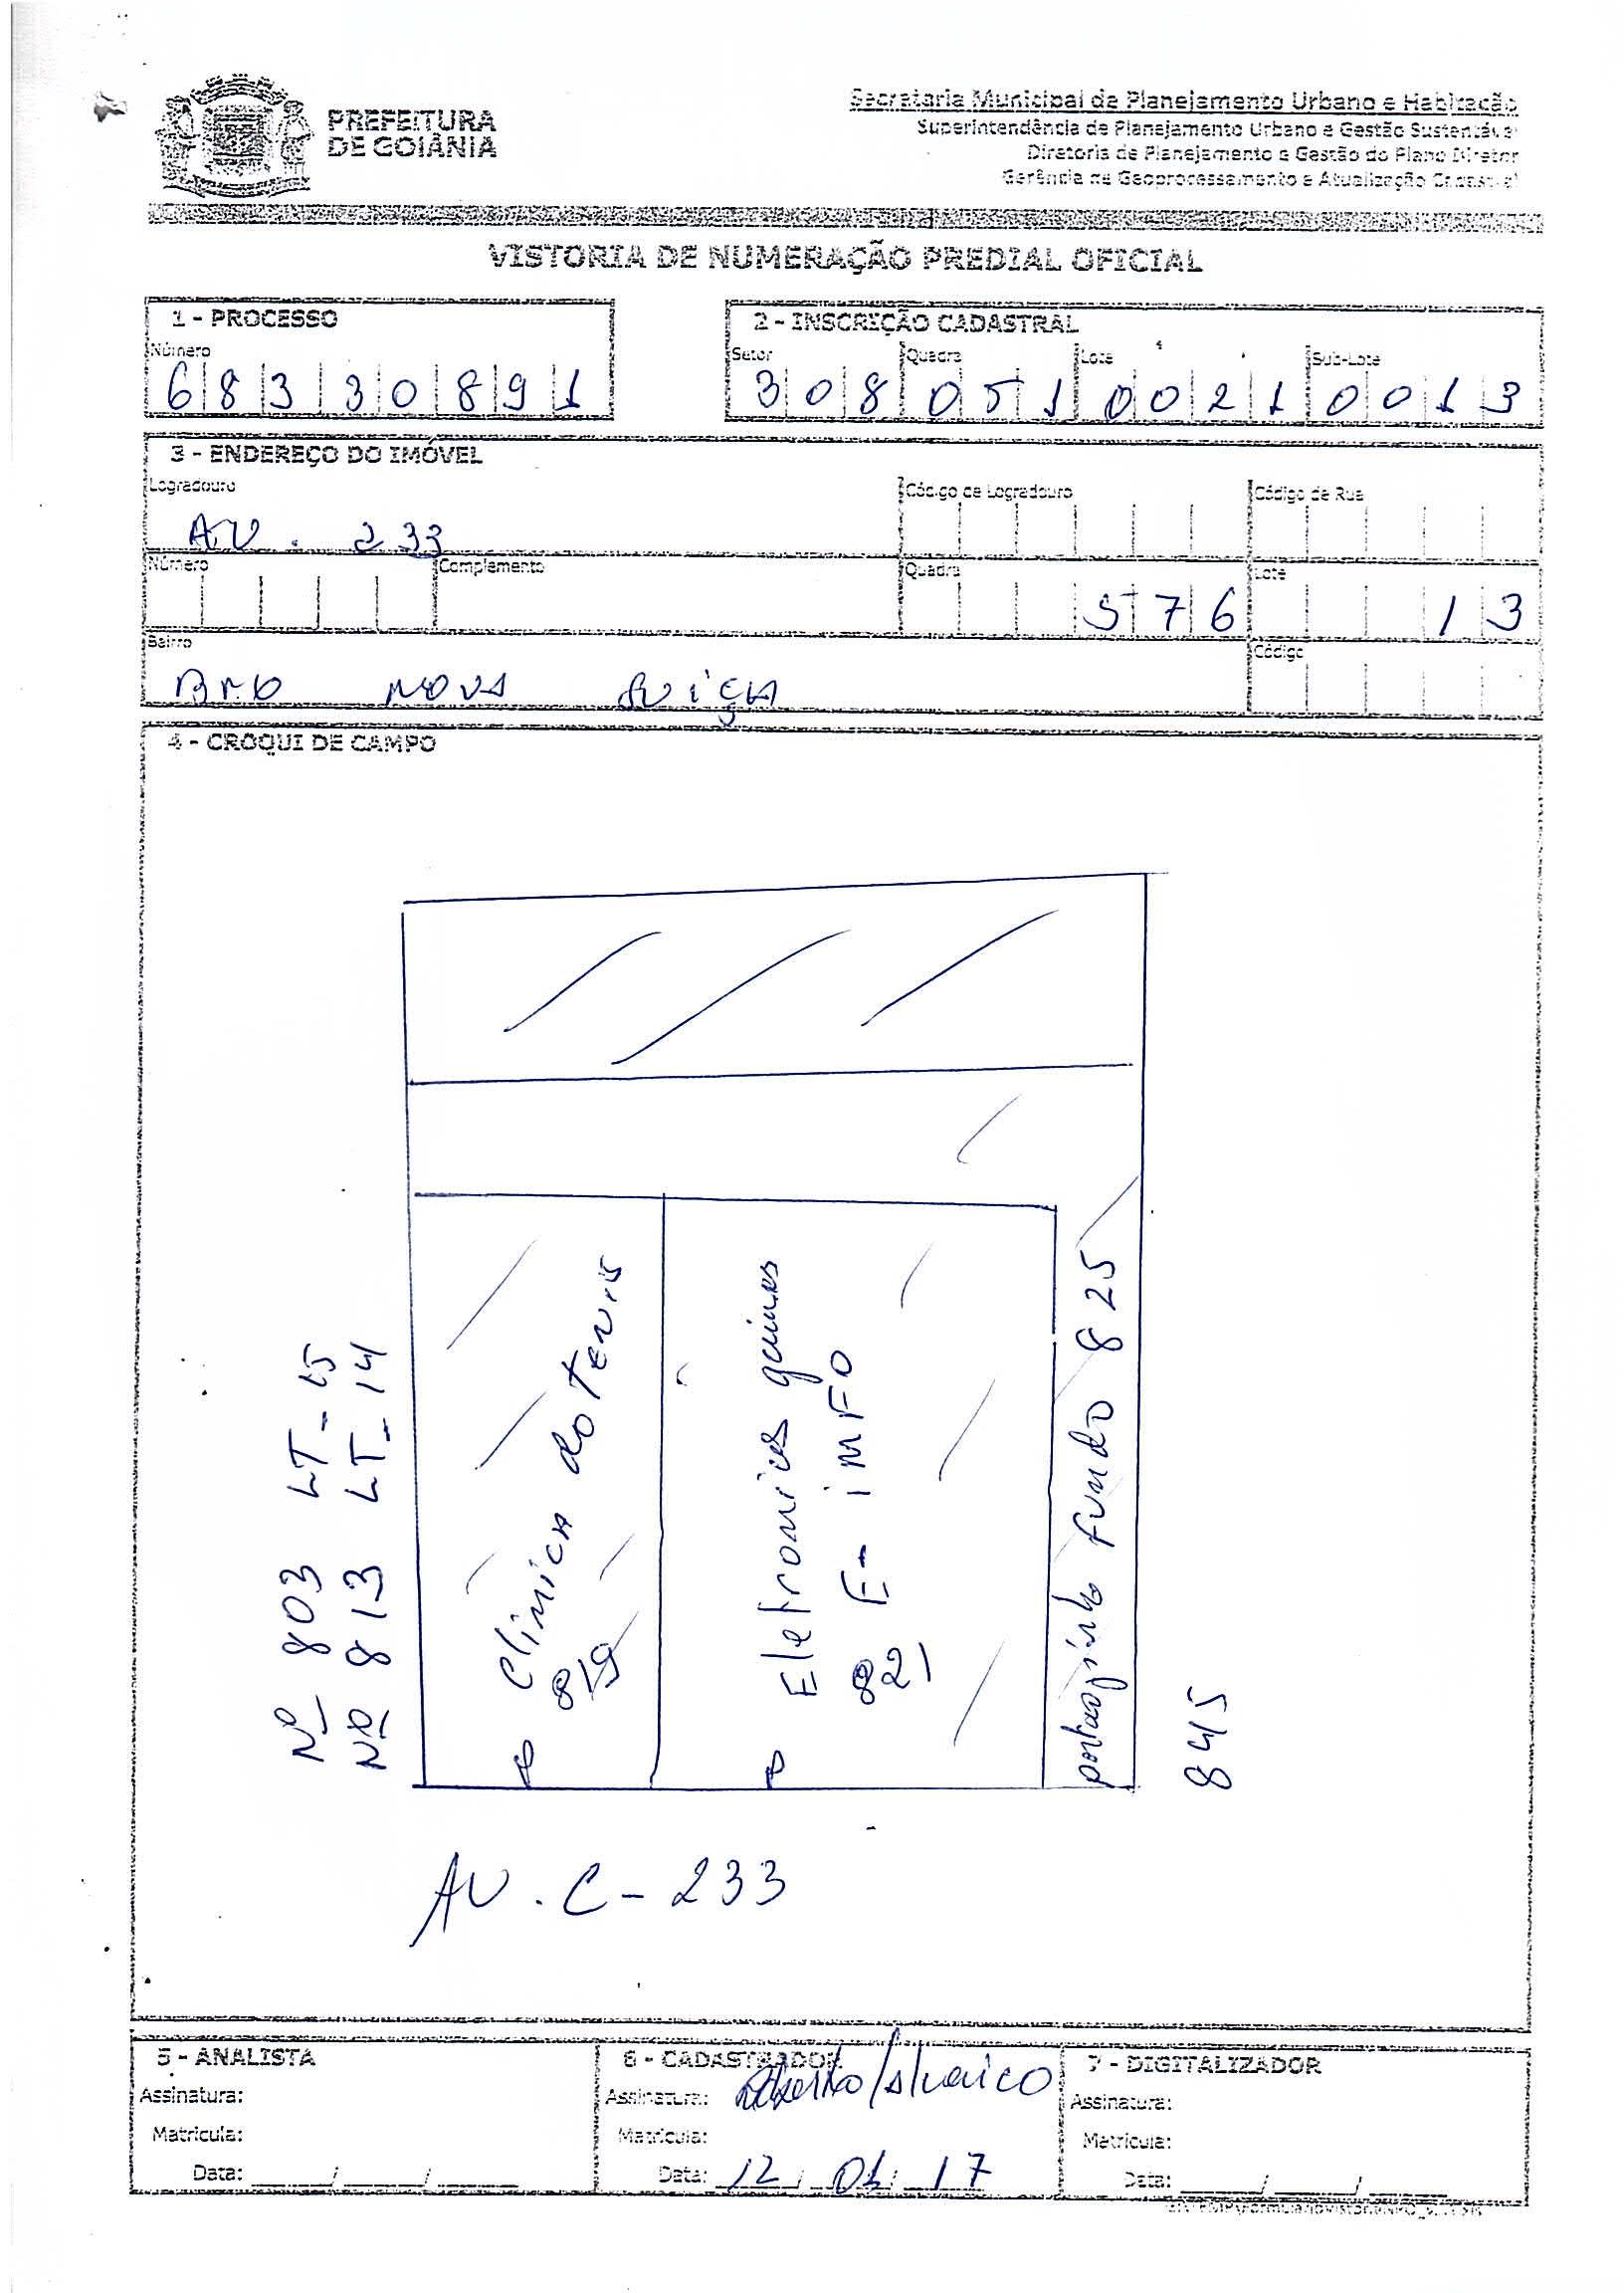 PREFEITURA
DE GOIÂNIA
Secretaria Municipal de Planejamento Urbano e Habitação
Superintendência de Planejamento Urbano e Gestão Sustentável
Diretoria de Planejamento e Gestão do Plano Diretor
Gerência de Geoprocessamento e Atualização Cadastral
VISTORIA DE NUMERAÇÃO PREDIAL OFICIAL
1 - PROCESSO
Número
6 8 3 3 0 8 9 1
2 - INSCRIÇÃO CADASTRAL
Setor Quadra Lote Sub-Lote
3 0 8 0 5 1 0 0 2 1 0 0 1 3
3 - ENDEREÇO DO IMÓVEL
Logradouro Código de Logradouro Código de Rua
AV. 233
Número Complemento Quadra Lote
5 7 6 1 3
Bairro Código
NOVA SUIÇA
4 - CROQUI DE CAMPO
Nº 803 LT-15
Nº 813 LT-14
Clinica do tenis
819
Eletronics gaimes
821 E- iMFO
portaozinho fundo 825
845
AV. C-233
5 - ANALISTA
Assinatura:
Matrícula:
Data: ____/____/____
6 - CADASTRADOR
Assinatura:
Matrícula:
Data: 12/01/17
7 - DIGITALIZADOR
Assinatura:
Matrícula:
Data: ____/____/____